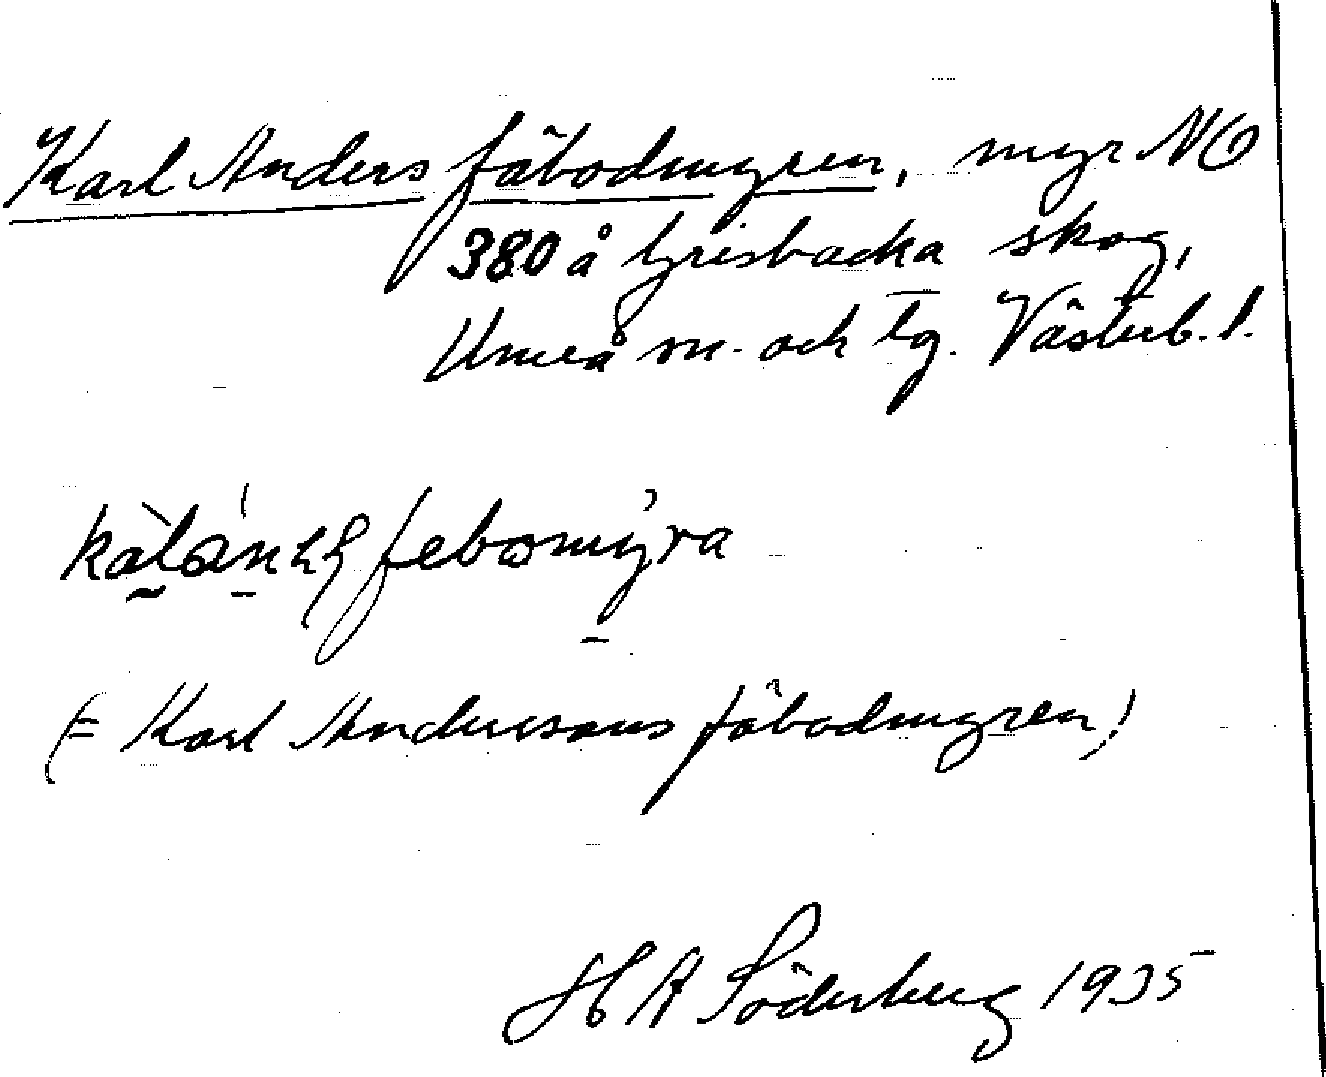 Karl Anders fäbodmyren, myr NO
380 å Grisbacka skog,
Umeå sn. och tg. Västerb. l.
febomyra
(= Karl Anderssons fäbodmyren!)
H A Söderberg 1935